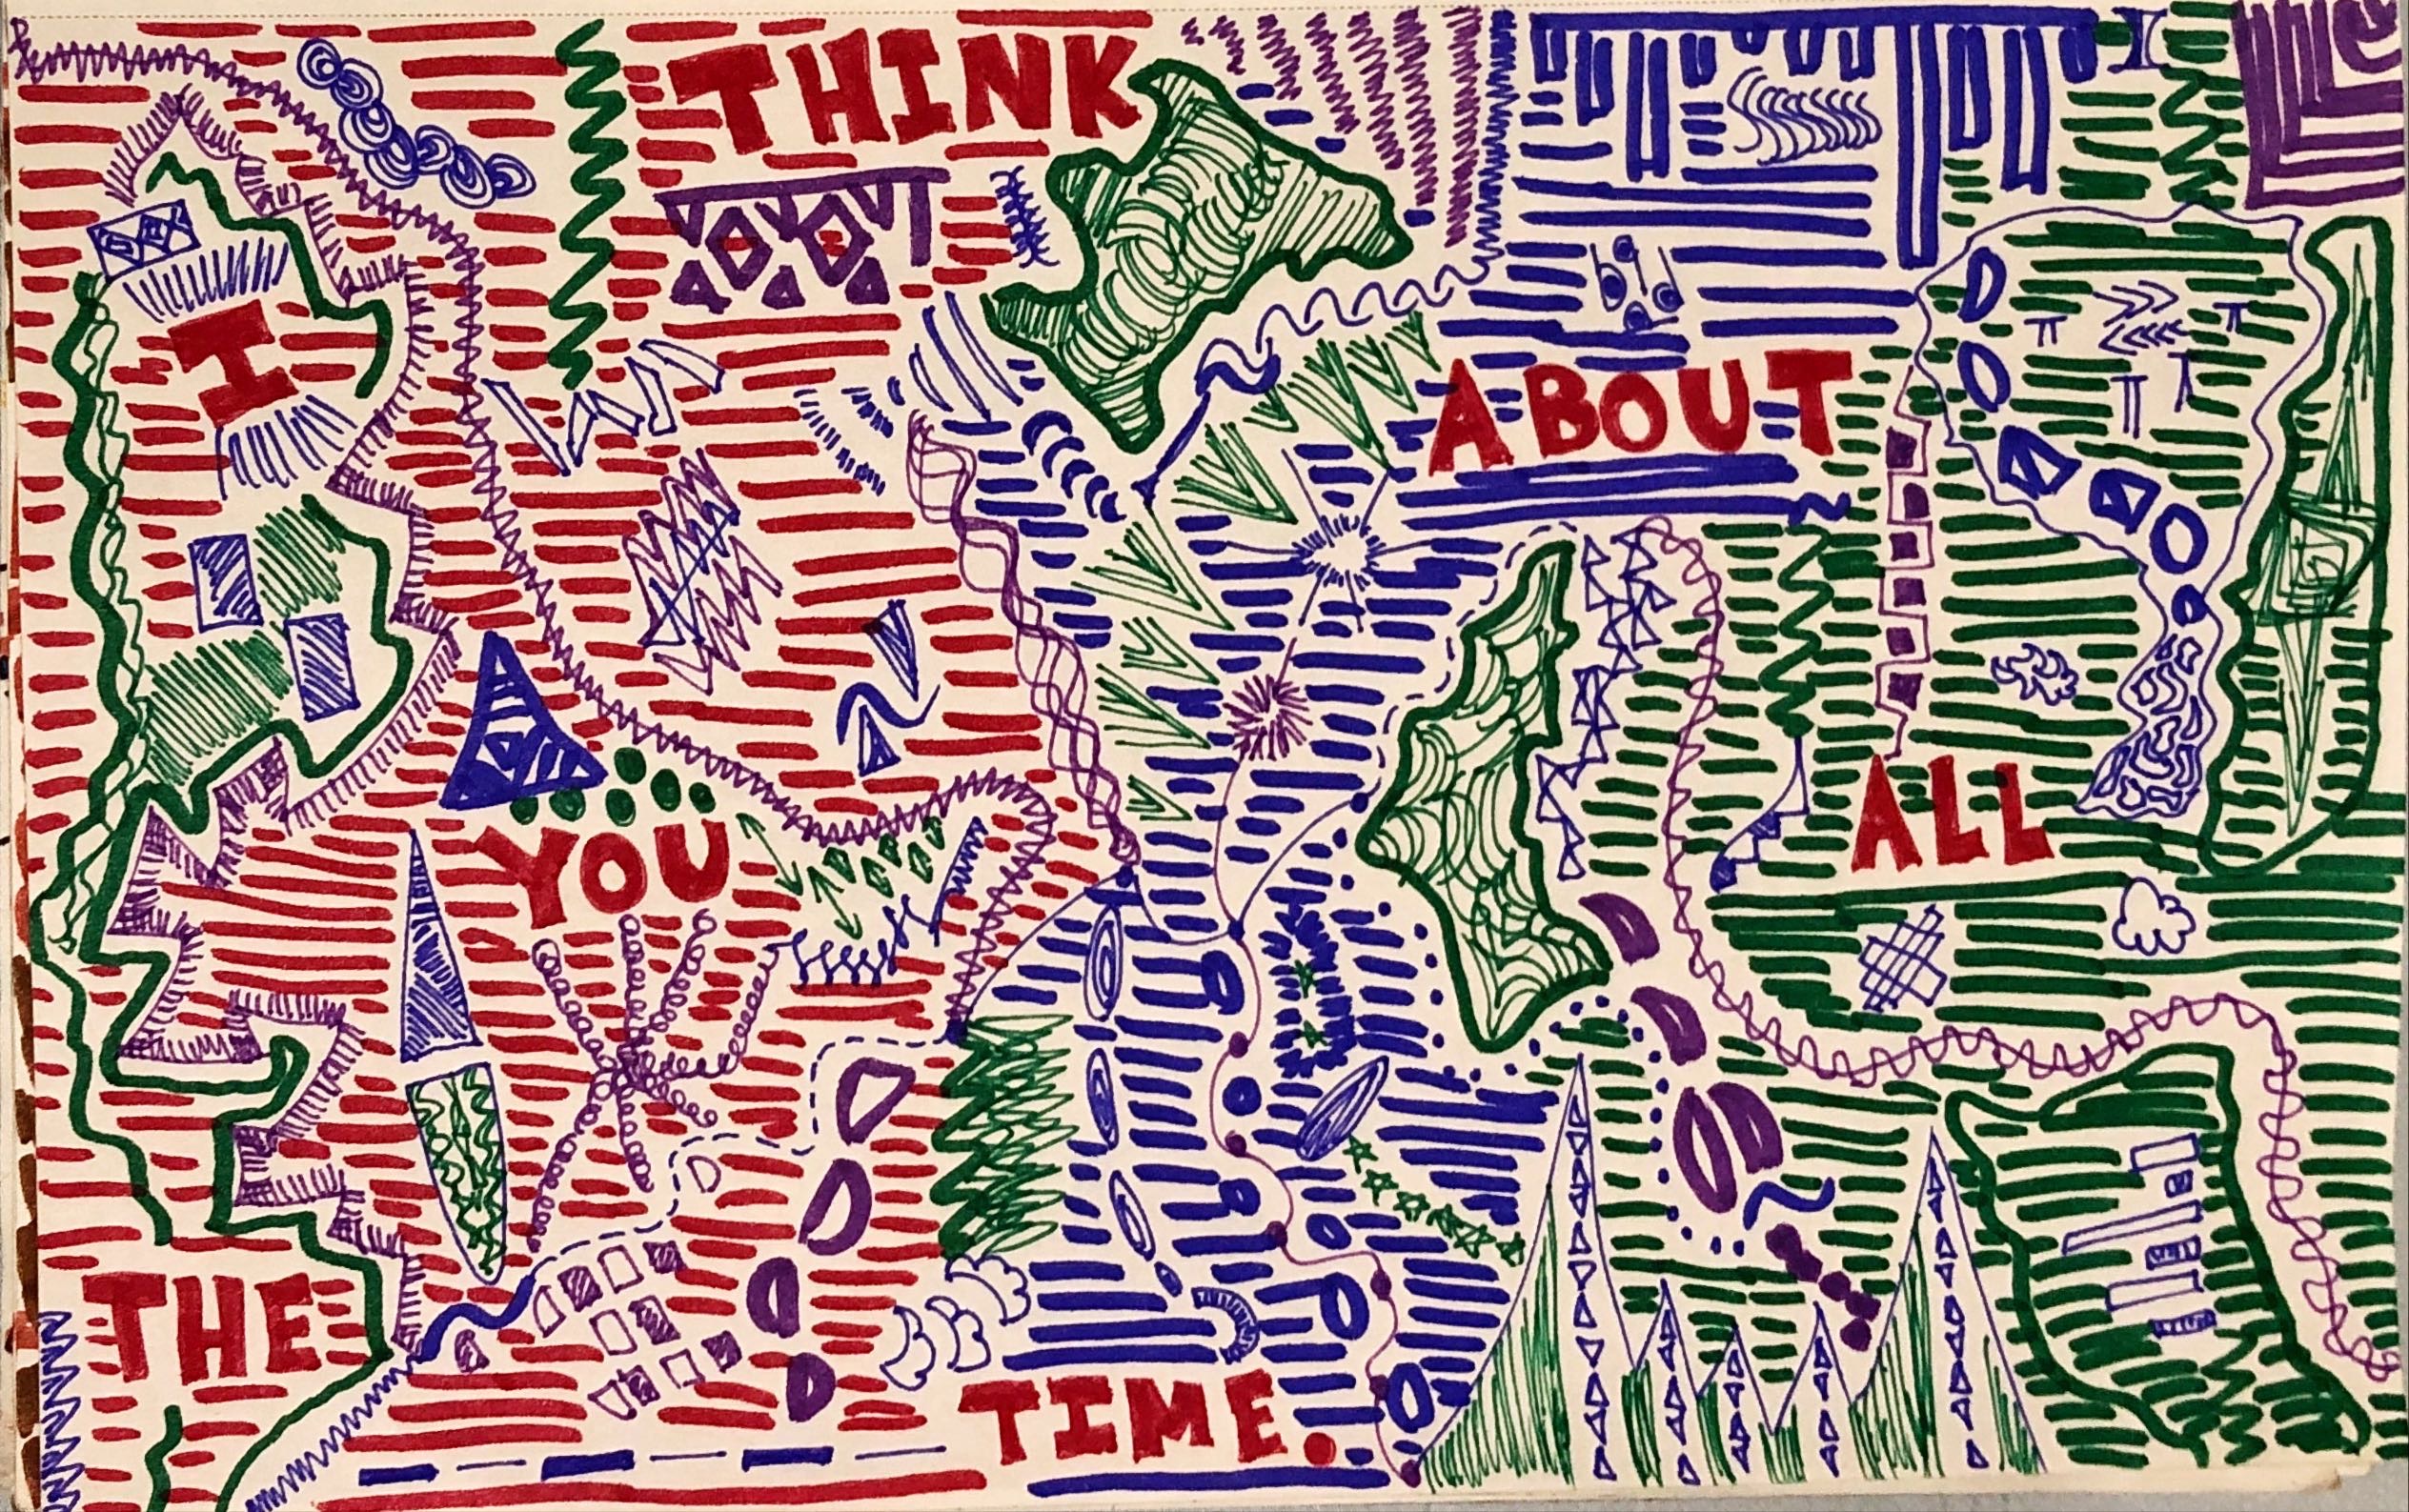 I THINK
ABOUT
YOU ALL
THE TIME.